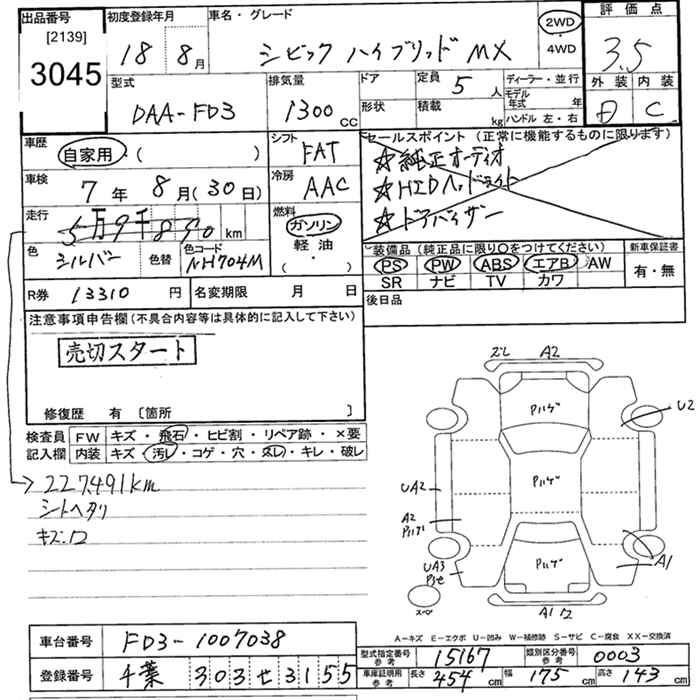 出品番号 [2139] 3045
初度登録年月 18年 8月
車名・グレード シビック ハイブリッド MX
2WD・4WD
評価点 3.5
外装 D 内装 C
型式 DAA-FD3
排気量 1300cc
ドア 形状
定員 5人
積載 kg
ディーラー・並行
モデル年式 年
ハンドル 左・右
車歴 自家用・( )
シフト FAT
セールスポイント (正常に機能するものに限ります)
☆純正オーディオ
☆HIDヘッドライト
☆ドアバイザー
車検 7年 8月(30日)
冷房 AAC
走行 5万9千830km
燃料 ガソリン 軽油・( )
色 シルバー 色替 色コード NH704M
装備品 (純正品に限り〇をつけてください)
PS PW ABS エアB AW
SR ナビ TV カワ
新車保証書 有・無
R券 13310円
名変期限 月 日
後日品
注意事項申告欄(不具合内容等は具体的に記入して下さい)
売切スタート
修復歴 有 〔箇所 〕
検査員記入欄
FW キズ・飛石・ヒビ割・リペア跡・×要
内装 キズ・汚レ・コゲ・穴・スレ・キレ・破レ
227,491km
シートヘタリ
キズ.
ズレ A2
Pハゲ
U2
UA2
Pハゲ
A2
Pハゲ
UA3
Pハゲ
A1
スペ
A1
A-キズ E-エクボ U-凹み W-補修跡 S-サビ C-腐食 XX-交換済
車台番号 FD3-1007038
登録番号 千葉 303せ3155
型式指定番号 参考 15167
類別区分番号 参考 0003
車庫証明用 参考 長さ 454cm 幅 175cm 高さ 143cm